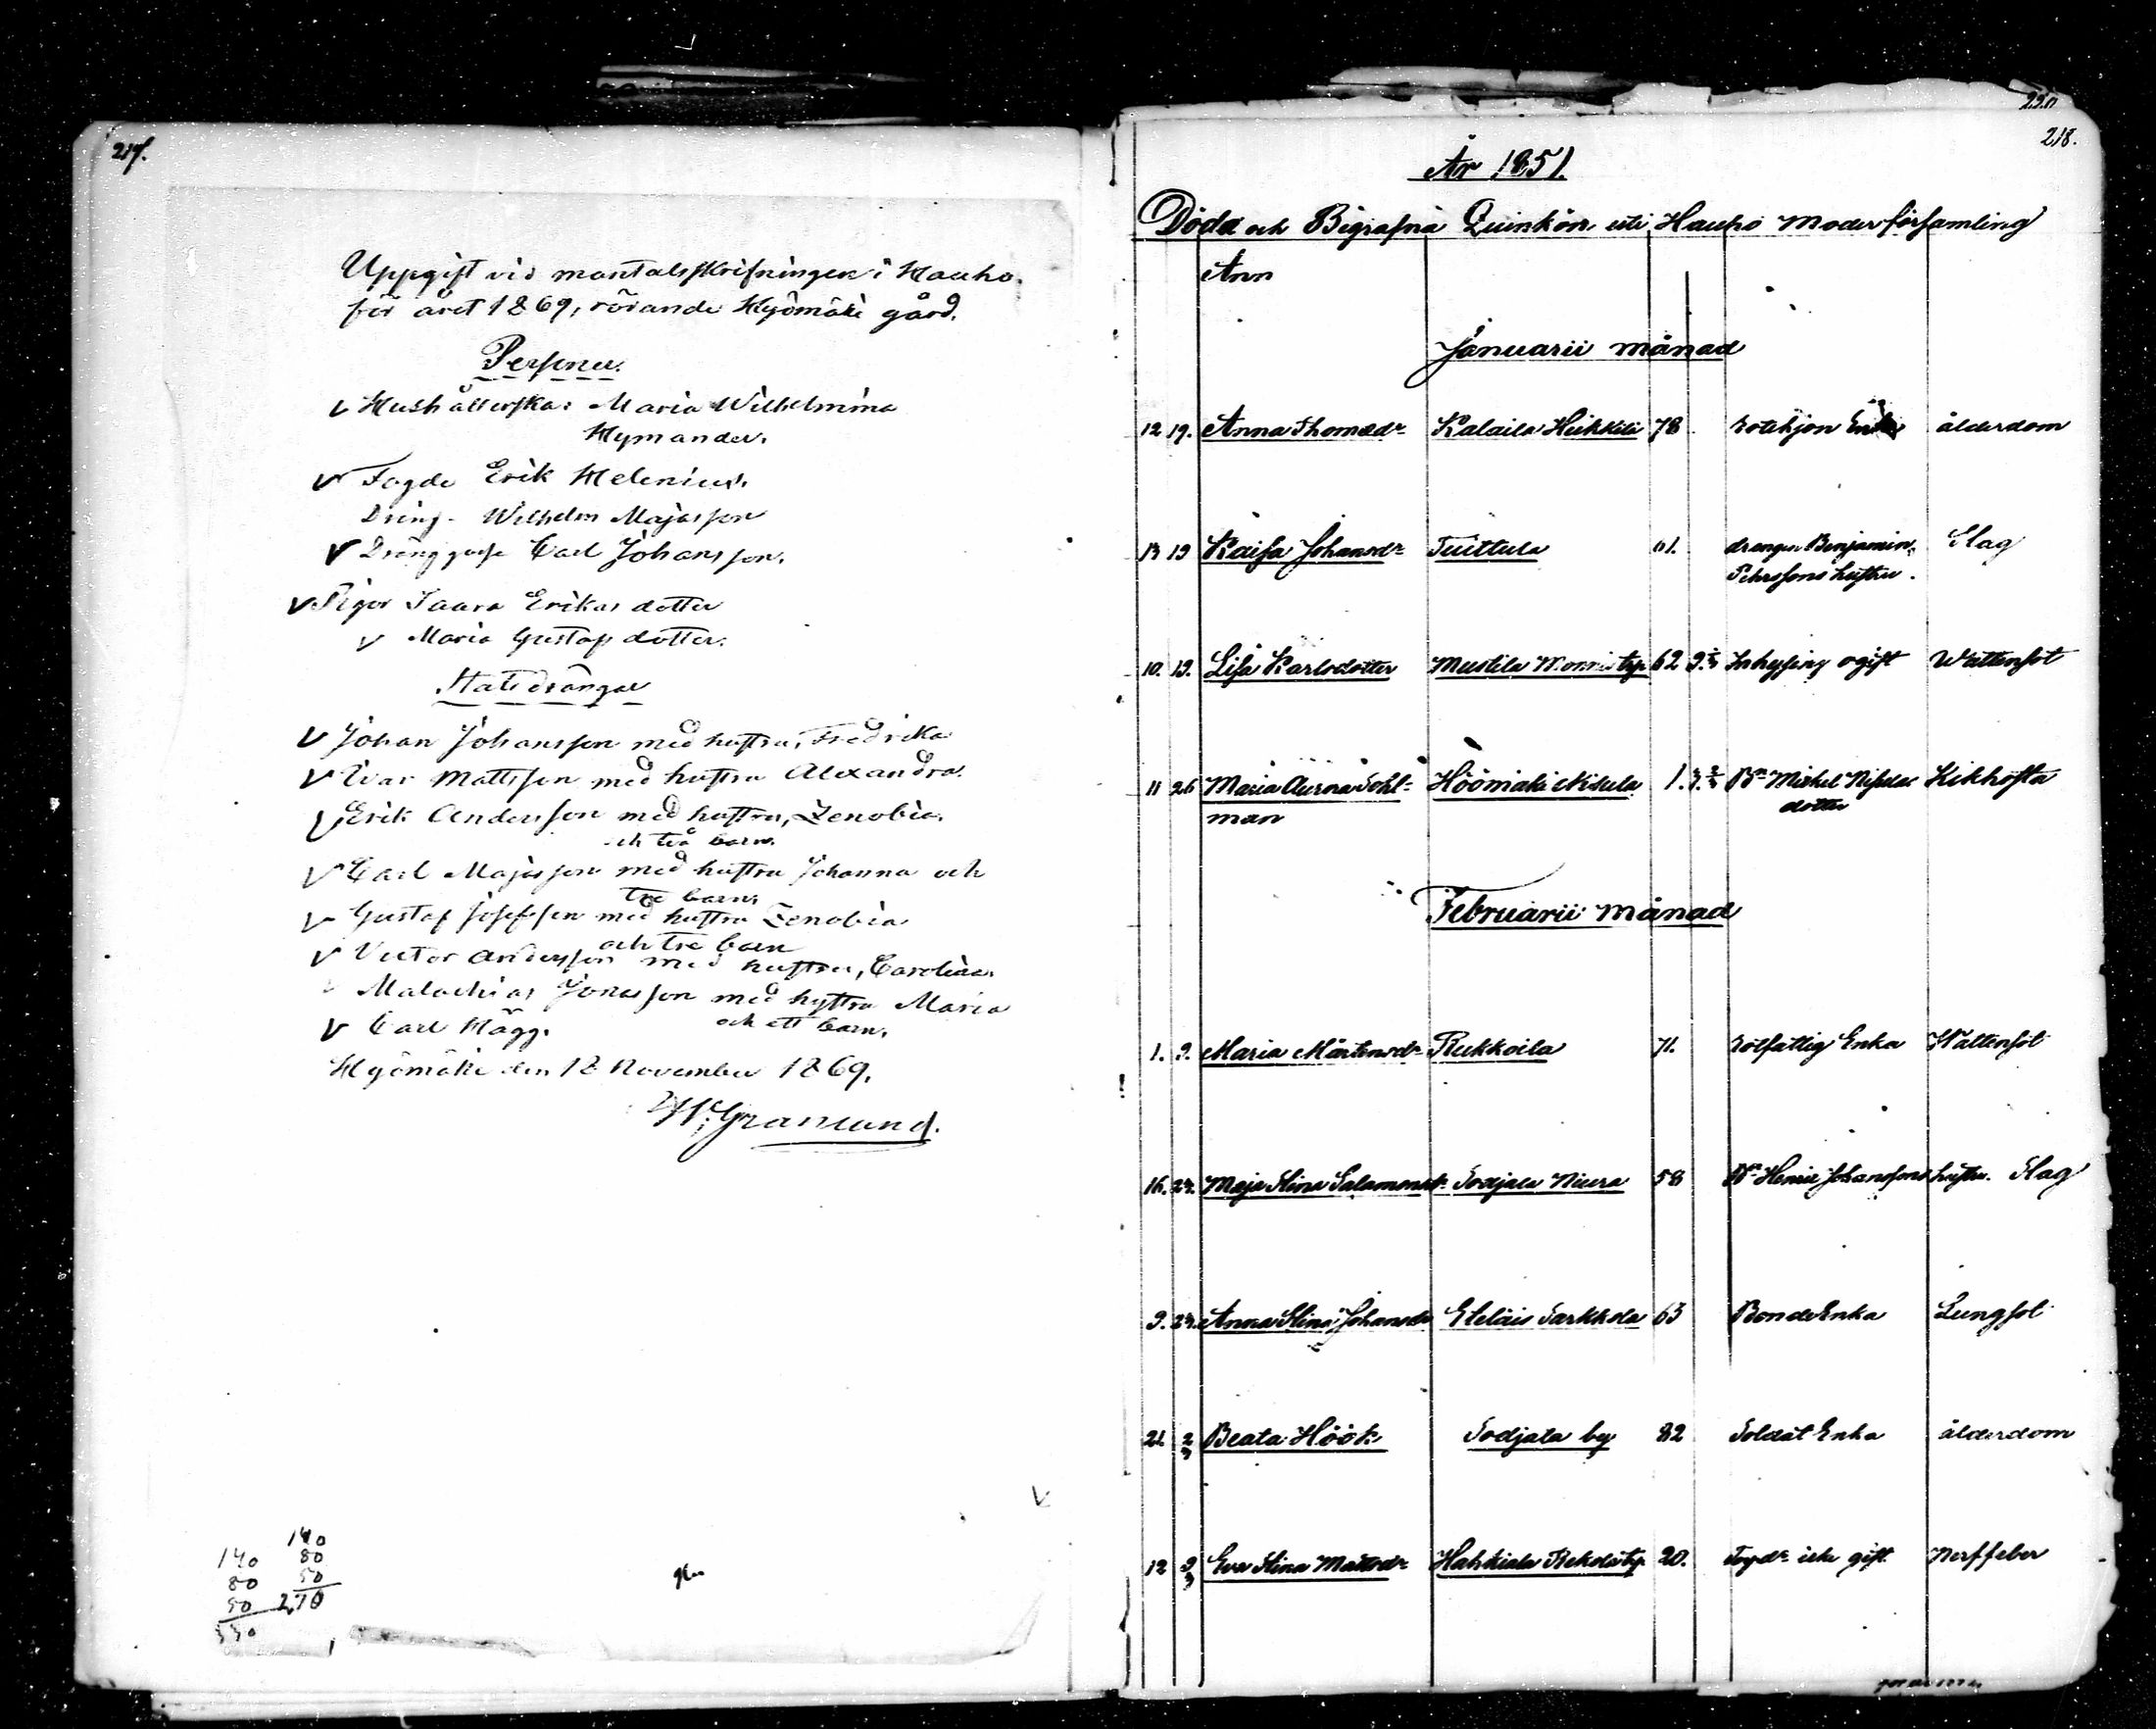 217.
Uppgift vid mantalsskrifningen i Hauho
för året 1869, rörande Hyömäki gård.
Personer.
v Hushållerska: Maria Wilhelmina
Hymander.
v Fogde Erik Helenius.
Dräng. Wilhelm Majasson
v Dränggosse Carl Johansson.
v Pigor Saara Erikas dotter
v Maria Gustafs dotter.
Statsdrängar
v Johan Johansson med hustru, Fredrika
v Ivar Mattsson med hustru Alexandra.
v Erik Andersson med hustru, Zenobia.
och två barn.
v Carl Majasson med hustru Johanna och
tre barn.
v Gustaf Josefsson med hustru Zenobia
och tre barn
v Victor Andersson med hustru, Carolina.
Malachias Jonasson med hustru Maria
och ett barn.
v Carl Hägg.
Hyömäki den 12 November 1869.
Granlund.
140 140
80 80
50 50
270
218.
År 1851.
Döda och Begrafna Quinkön uti Hauho Moderförsamling
Ann
Januarii månad
12 19. Anna Thomædr Kalaila Heikkilä 78 Rotehjon Enka ålderdom
13 19 Kaisa Johansdr Tuittula 61. drängen Benjamin
Pehrssons hustru. Slag
10. 19. Lisa Karlsdotter Mustila Monnis trp 62 Inhysing ogift Wattensot
11 26 Maria Aurora Sohl- Höömäki Nisula 1. Bn Mickel Nisulas Kikhosta
man dotter
Februarii månad
1. 9. Maria Mårtensdr Rukkoila 71. Rotfattig Enka Wattensot
16. 23. Maja Stina Salamonsdr Sodjala Niura 58 Bn Henric Johanssons hustru. Slag
9. 23. Anna Stina Johansdr Eteläis Sarkkola 63 Bonde Enka Lungsot
21. 2/3 Beata Höök Sodjala by 82 Soldat Enka ålderdom
12 9/3 Eva Stina Mattsdr Hahkiala Rekola trp 20. Torpdr icke gift Nerffeber